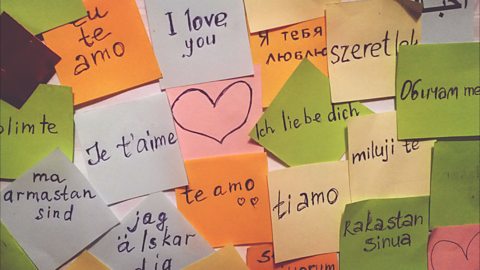 te
amo
I love
you
Я тебя
люблю
szeretlek
Обичам те
olim te
Je t'aime
Ich liebe dich
miluji te
ma
armastan
sind
te amo
ti amo
jag
älskar
dig
Rakastan
sinua